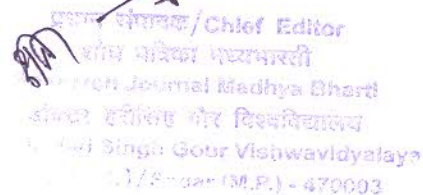 प्रधान संपादक/Chief Editor
शोध पत्रिका मध्यभारती
Journal Madhya Bharti
डॉक्टर हरीसिंह गौर विश्वविद्यालय
Singh Gour Vishwavidyalaya
(M.P.) - 470003